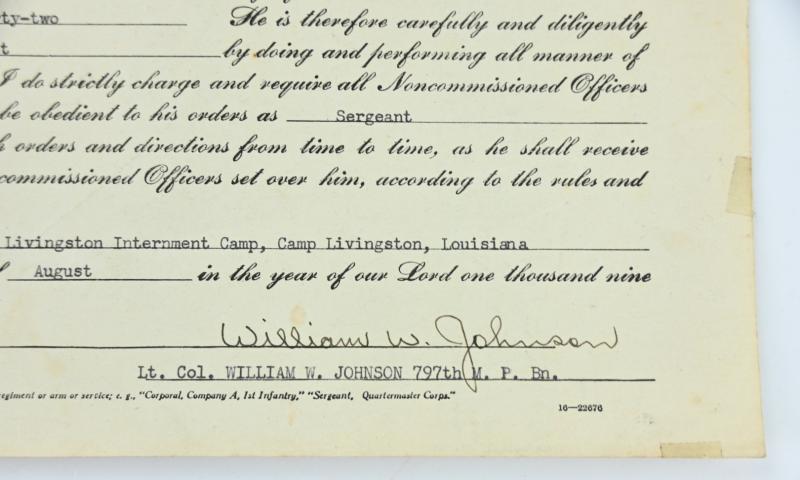 ty-two He is therefore carefully and diligently
t by doing and performing all manner of
I do strictly charge and require all Noncommissioned Officers
be obedient to his orders as Sergeant
h orders and directions from time to time, as he shall receive
commissioned Officers set over him, according to the rules and
Livingston Internment Camp, Camp Livingston, Louisiana
f August in the year of our Lord one thousand nine
William W. Johnson
Lt. Col. WILLIAM W. JOHNSON 797th M. P. Bn.
regiment or arm or service; e. g., "Corporal, Company A, 1st Infantry," "Sergeant, Quartermaster Corps."
16—22676